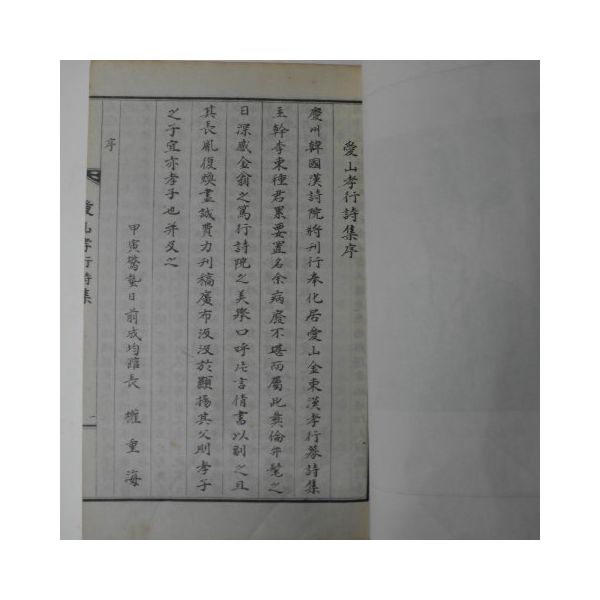 愛山孝行詩集序
慶州韓國漢詩院將刊行奉化居愛山金東漢孝行蒙詩集
主幹李東種君累要置名余病廢不堪而屬此彛倫弁髦之
日深感金翁之篤行詩院之美擧口呼此言倩書以副之且
其長胤復煥盡誠費力刊稿廣布汲汲於顯揚其父則孝子
之子宜亦孝子也幷及之
甲寅驚蟄日前成均館長 權重海
序
愛山孝行詩集
一